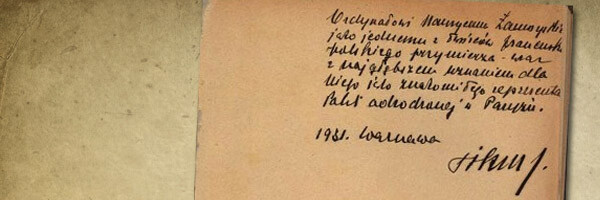 Ordynatowi Maurycemu Zamoyskie
jako jednemu z twórców francusko
polskiego przymierza - wraz
z najgłębszem uznaniem dla
Niego jako znakomitego reprezenta
Polski odrodzonej w Paryżu.
1931. Warszawa